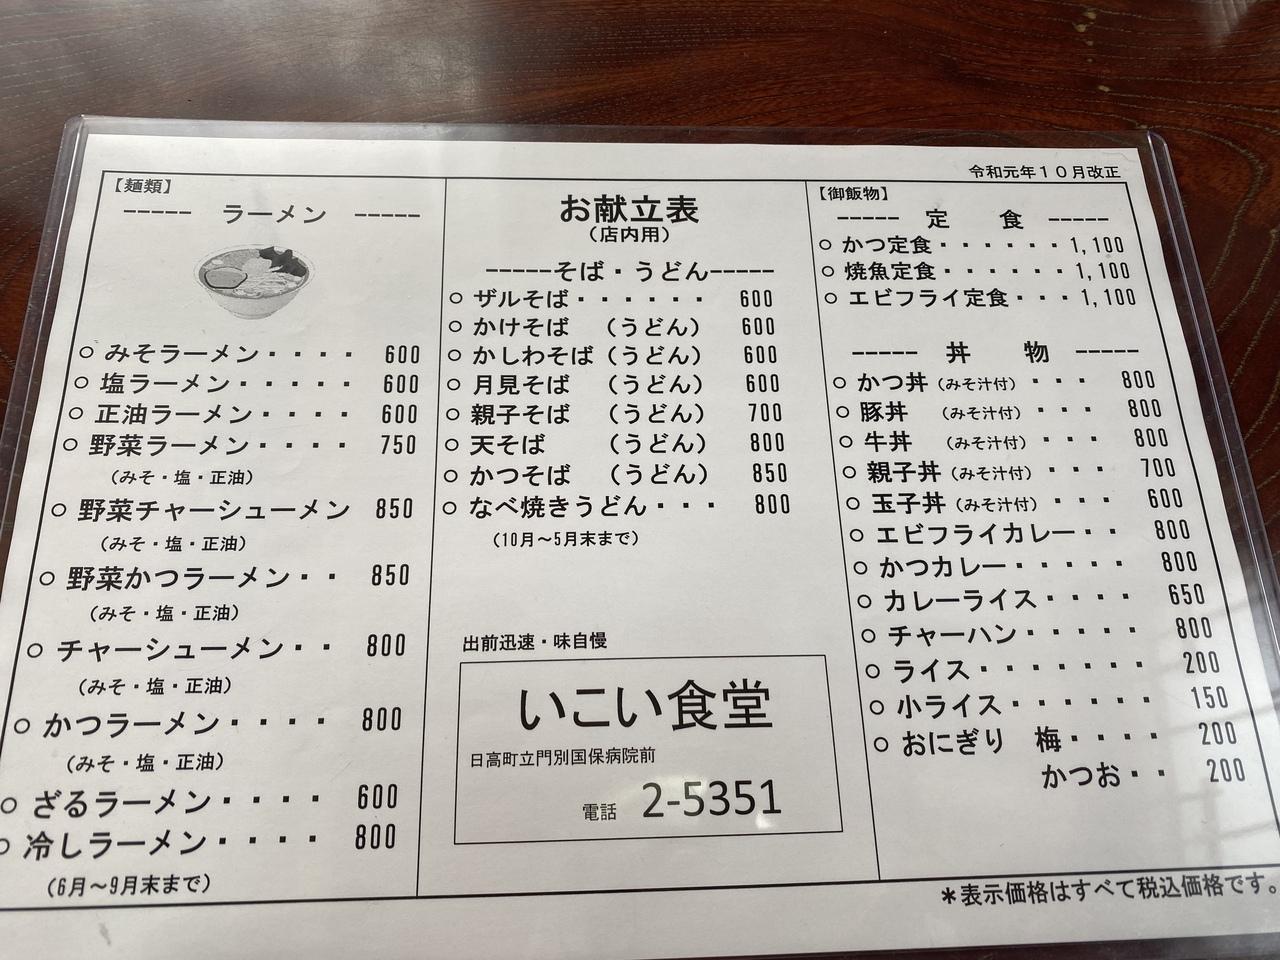 令和元年１０月改正
【麺類】
----- ラーメン -----
○ みそラーメン・・・・ 600
○ 塩ラーメン・・・・・ 600
○ 正油ラーメン・・・・ 600
○ 野菜ラーメン・・・・ 750
（みそ・塩・正油）
○ 野菜チャーシューメン 850
（みそ・塩・正油）
○ 野菜かつラーメン・・ 850
（みそ・塩・正油）
○ チャーシューメン・・ 800
（みそ・塩・正油）
○ かつラーメン・・・・ 800
（みそ・塩・正油）
○ ざるラーメン・・・・ 600
○ 冷しラーメン・・・・ 800
（6月〜9月末まで）
お献立表
（店内用）
-----そば・うどん-----
○ ザルそば・・・・・・ 600
○ かけそば （うどん） 600
○ かしわそば（うどん） 600
○ 月見そば （うどん） 600
○ 親子そば （うどん） 700
○ 天そば （うどん） 800
○ かつそば （うどん） 850
○ なべ焼きうどん・・・ 800
（10月〜5月末まで）
出前迅速・味自慢
いこい食堂
日高町立門別国保病院前
電話 2-5351
【御飯物】
----- 定 食 -----
○ かつ定食・・・・・・ 1,100
○ 焼魚定食・・・・・・ 1,100
○ エビフライ定食・・・ 1,100
----- 丼 物 -----
○ かつ丼（みそ汁付）・・・ 800
○ 豚丼 （みそ汁付）・・・ 800
○ 牛丼 （みそ汁付）・・・ 800
○ 親子丼（みそ汁付）・・・ 700
○ 玉子丼（みそ汁付）・・・ 600
○ エビフライカレー・・ 800
○ かつカレー・・・・・ 800
○ カレーライス・・・・ 650
○ チャーハン・・・・・ 800
○ ライス・・・・・・・ 200
○ 小ライス・・・・・・ 150
○ おにぎり 梅・・・・ 200
かつお・・ 200
＊表示価格はすべて税込価格です。